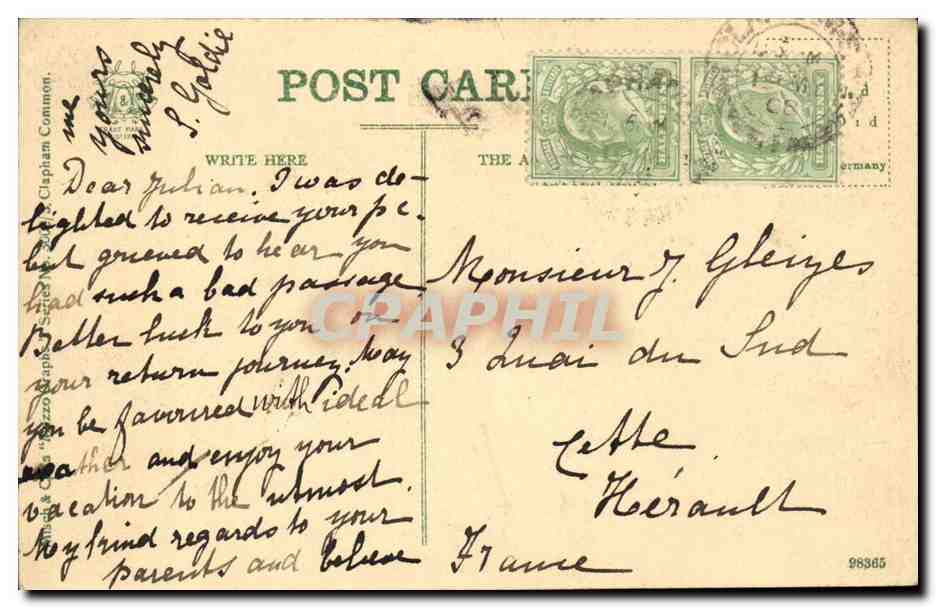 POST CAR
WRITE HERE
THE A
ermany
Dear Julian. I was de-
lighted to receive your pc.
but grieved to hear you
had such a bad passage
Better luck to you on
your return journey. May
you be favoured with ideal
weather and enjoy your
vacation to the utmost.
My kind regards to your
parents and believe
me
yours
sincerely
S. Goldie
Monsieur J. Gleizes
3 Quai du Sud
Cette
Hérault
France
98365
Clapham Common.
CPAPHIL